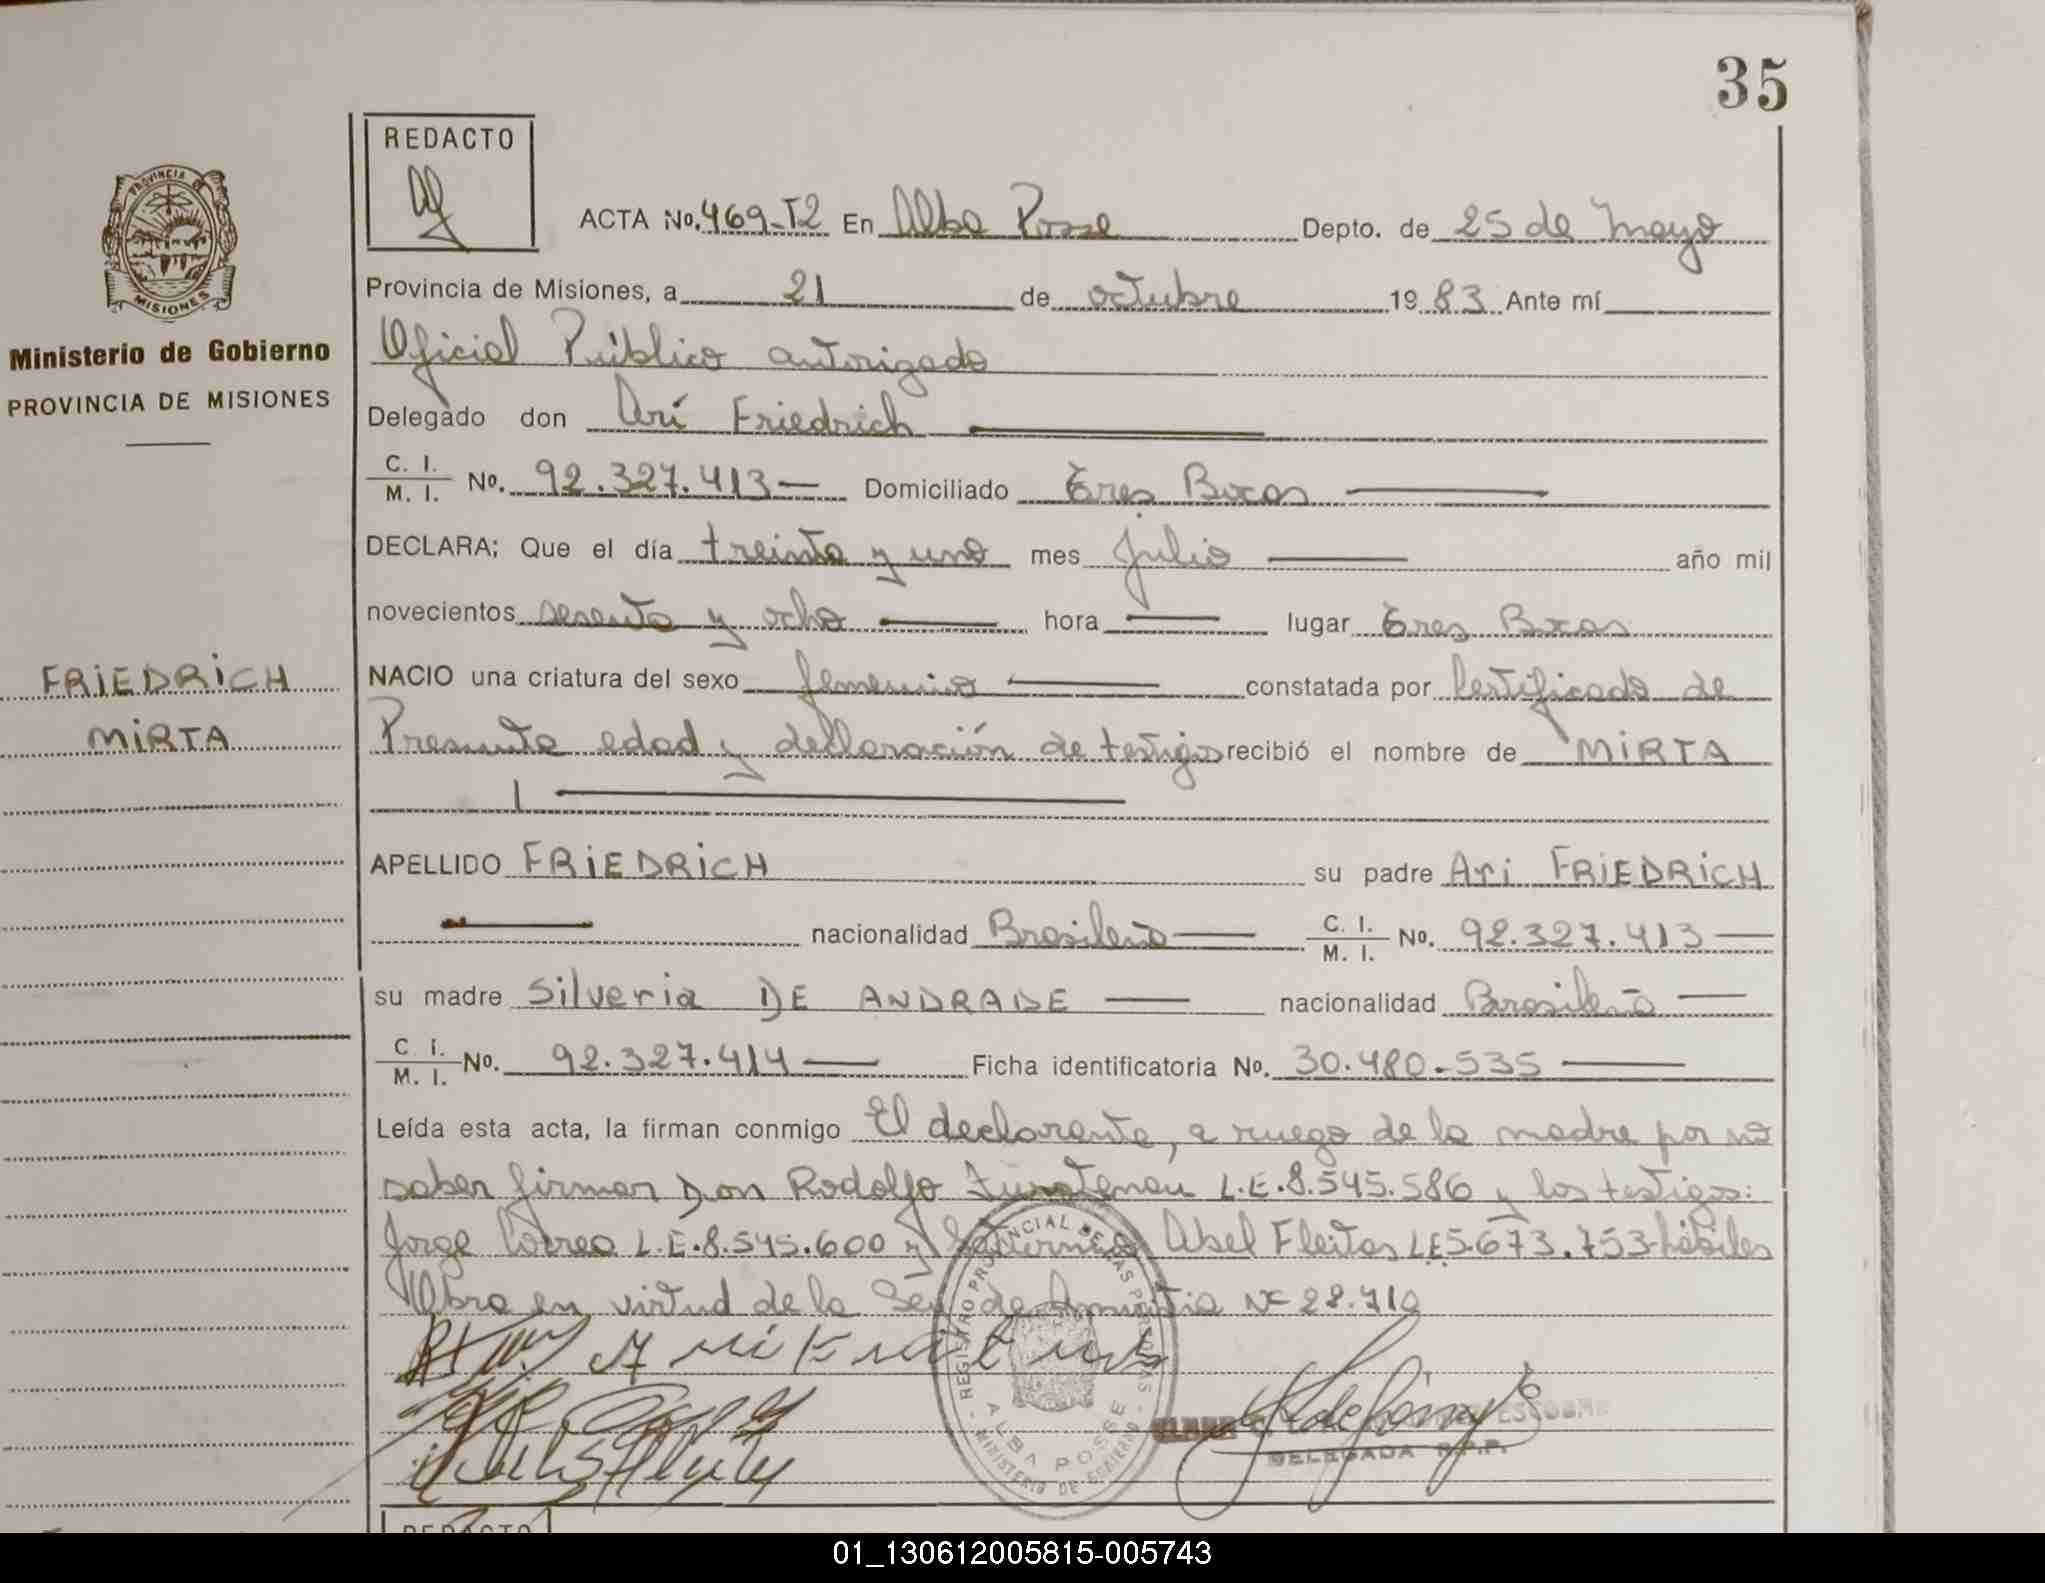 35
REDACTO
PROVINCIA DE
MISIONES
Ministerio de Gobierno
PROVINCIA DE MISIONES
FRIEDRICH
MIRTA
ACTA No. 469-T2 En Alba Posse Depto. de 25 de Mayo
Provincia de Misiones, a 21 de octubre 1983 Ante mí
Oficial Público autorizado
Delegado don Ari Friedrich
C. I. / M. I. No. 92.327.413 Domiciliado Tres Bocas
DECLARA; Que el día treinta y uno mes Julio año mil
novecientos sesenta y ocho hora lugar Tres Bocas
NACIO una criatura del sexo femenino constatada por Certificado de
Presunta edad y declaración de testigos recibió el nombre de MIRTA
APELLIDO FRIEDRICH su padre Ari FRIEDRICH
nacionalidad Brasileña C. I. / M. I. No. 92.327.413
su madre Silveria DE ANDRADE nacionalidad Brasileña
C. I. / M. I. No. 92.327.414 Ficha identificatoria No. 30.480.535
Leída esta acta, la firman conmigo El declarante, a ruego de la madre por no
saber firmar Don Rodolfo L.E. 8.545.586 y los testigos:
Jorge Correa L.E. 8.545.600 y Abel Fleitas L.E 5.673.753 hábiles
Obra en virtud de la Ley de Amnistia Nº
REGISTRO PROVINCIAL DE LAS PERSONAS
ALBA POSSE
MINISTERIO DE GOBIERNO
ESCOBAR
DELEGADA R.P.P.
REDACTO
01_130612005815-005743